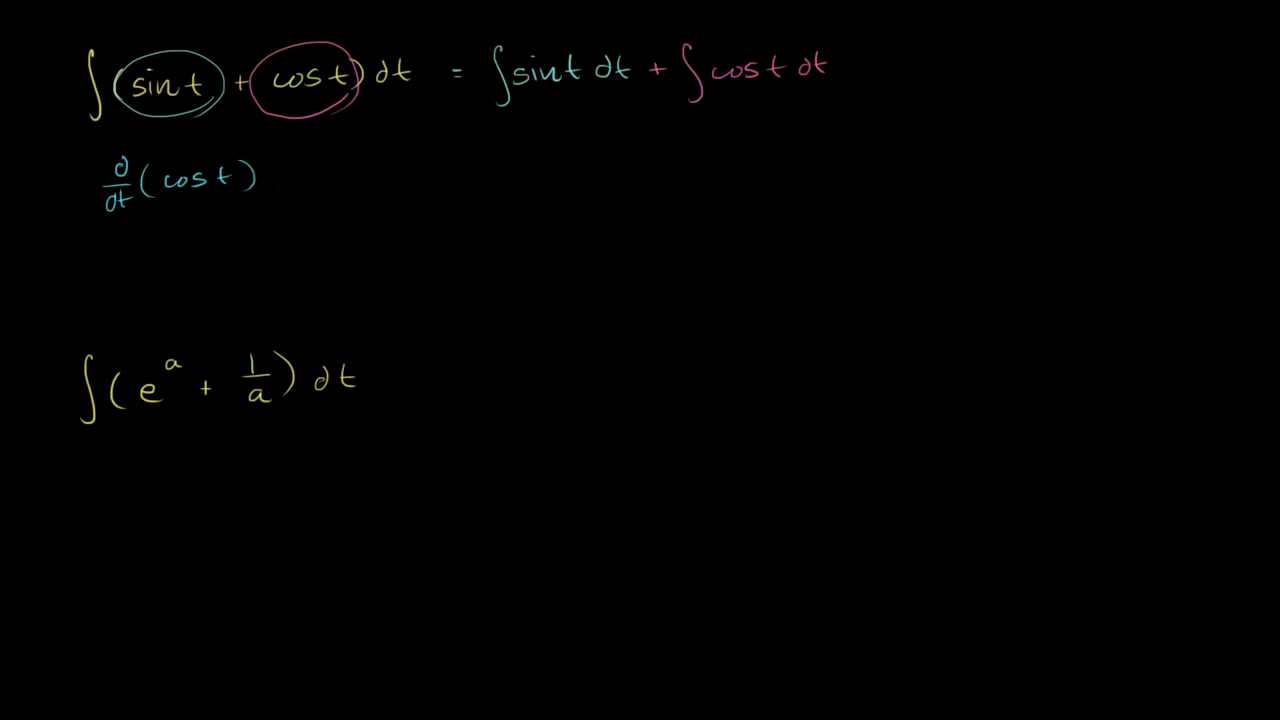 ∫(sin t + cos t) dt = ∫sin t dt + ∫cos t dt
d/dt (cos t)
∫(e^a + 1/a) dt